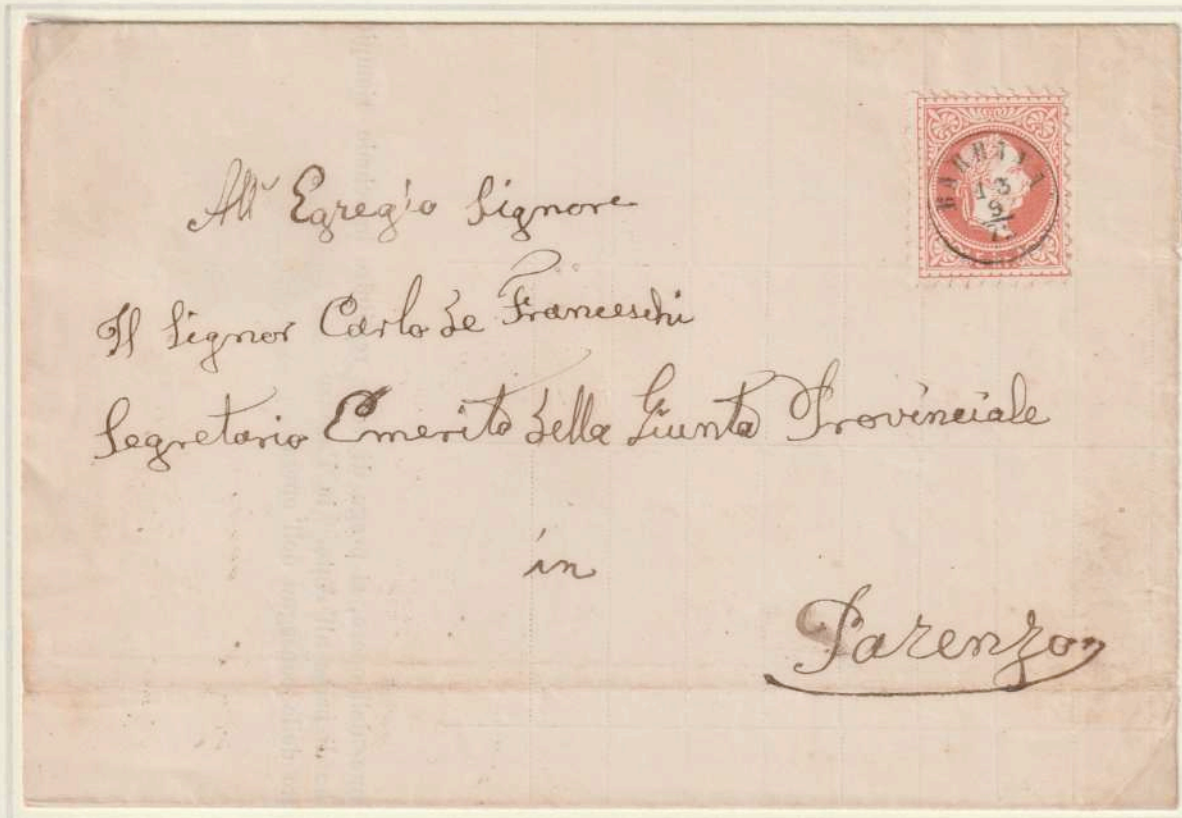 All' Egregio Signore
Il Signor Carlo De Franceschi
Segretario Emerito della Giunta Provinciale
in
Parenzo
BARBANA
13